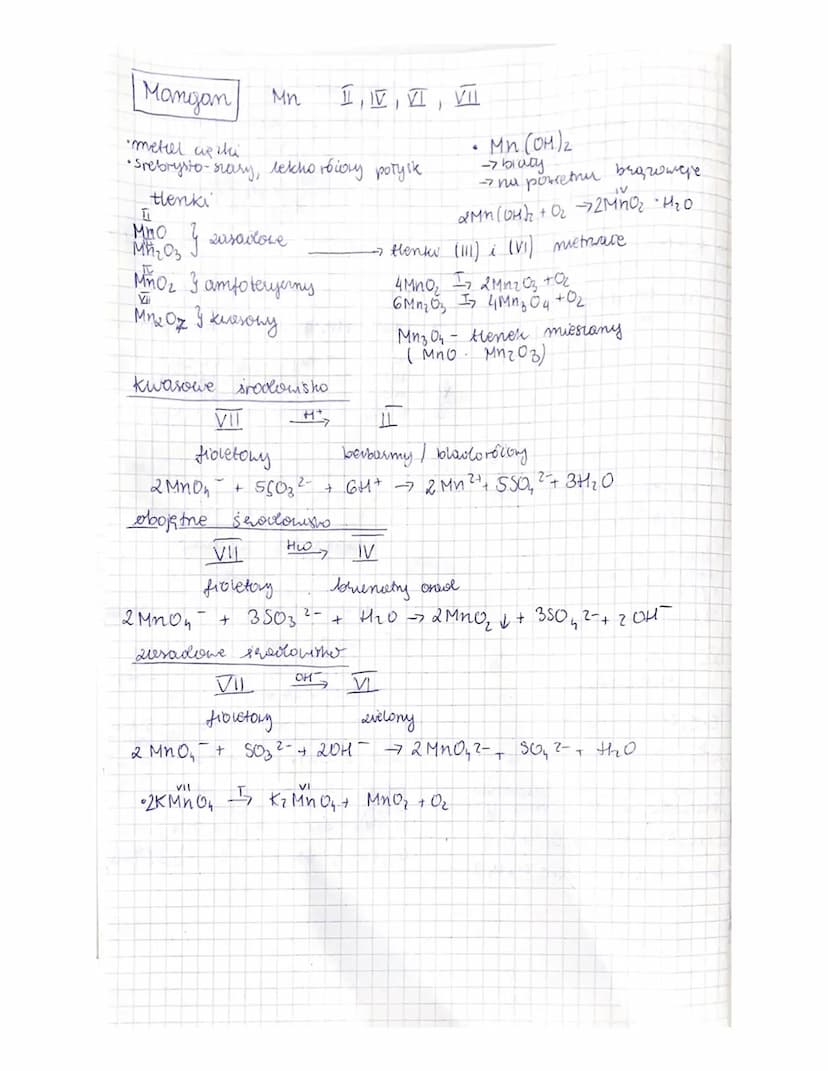 Mangan Mn II, IV, VI, VII
• metal ciężki
• srebrzysto-szary, lekko różowy połysk
• Mn(OH)₂
→ biały
→ na powietrzu brązowieje
2Mn(OH)₂ + O₂ → 2MnO₂ · H₂O
IV
tlenki
II
MnO
III
Mn₂O₃ } zasadowe → tlenki (III) i (VI) nietrwałe
IV
MnO₂ } amfoteryczny
VII
Mn₂O₇ } kwasowy
4MnO₂ T→ 2Mn₂O₃ + O₂
6Mn₂O₃ T→ 4Mn₃O₄ + O₂
Mn₃O₄ - tlenek mieszany
(MnO · Mn₂O₃)
kwasowe środowisko
VII H⁺→ II
fioletowy bezbarwny / bladoróżowy
2MnO₄⁻ + 5SO₃²⁻ + 6H⁺ → 2Mn²⁺ + 5SO₄²⁻ + 3H₂O
obojętne środowisko
VII H₂O→ IV
fioletowy brunatny osad
2MnO₄⁻ + 3SO₃²⁻ + H₂O → 2MnO₂↓ + 3SO₄²⁻ + 2OH⁻
zasadowe środowisko
VII OH⁻→ VI
fioletowy zielony
2MnO₄⁻ + SO₃²⁻ + 2OH⁻ → 2MnO₄²⁻ + SO₄²⁻ + H₂O
VII VI
• 2KMnO₄ T→ K₂MnO₄ + MnO₂ + O₂